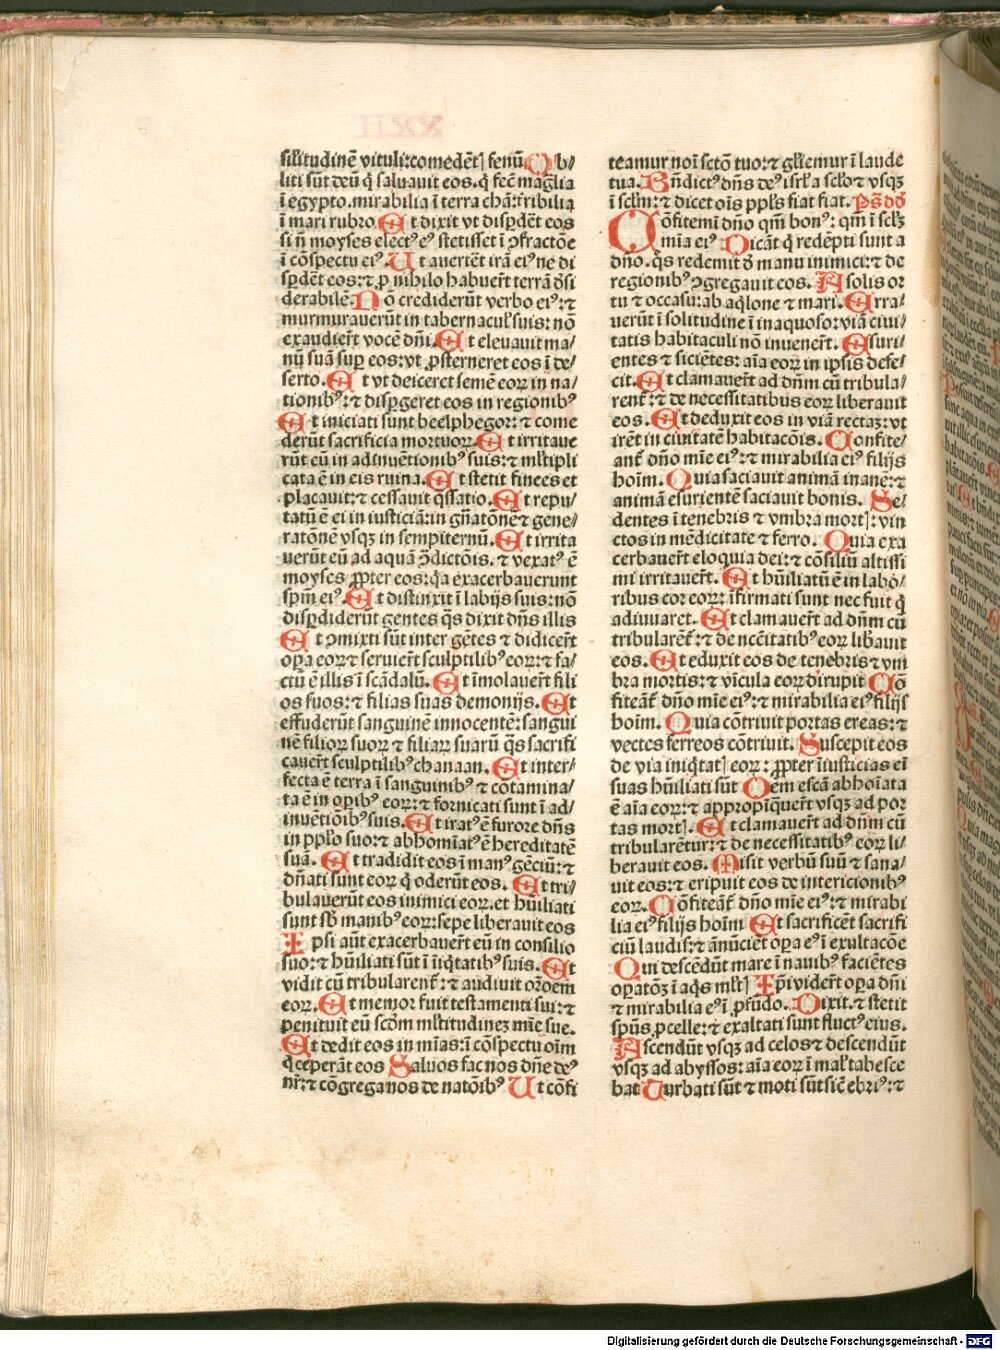 silitudinē vituli: comedētꝭ fenū. Ob/
liti sūt deū q̄ saluauit eos. q̄ fec̄ mag̅lia
ī egypto. mirabilia ī terra chā: tribilia
ī mari rubro. Et dixit vt disꝑdēt eos
si n̄ moyses electꝰ eꝰ stetisset ī ↄfractōe
ī cōspectu eiꝰ. Ut auertēt irā eiꝰ ne di
sꝑdēt eos: ⁊ ꝓ nihilo habuer̄t terrā d̄si
derabilē. Nō crediderūt verbo eiꝰ: ⁊
murmurauerūt in tabernacul̕ suis: nō
exaudier̄t vocē dn̄i. Et eleuauit ma-
nū suā suꝑ eos: vt ꝓsterneret eos ī de/
serto. Et vt deiceret semē eoꝝ in na/
tionibꝰ: ⁊ disꝑgeret eos in regionibꝰ
Et iniciati sunt beelphegor: ⁊ come
derūt sacrificia mortuoꝝ. Et irritaue
rūt eū in adinuētionibꝰ suis: ⁊ ml̕tipli
cata ē in eis ruina. Et stetit finees et
placauit: ⁊ cessauit q̄ssatio. Et repu/
tatū ē ei in iusticiā: in gn̄atōnē ⁊ gene/
ratōnē vsqꝫ in sempiternū. Et irrita
uerūt eū ad aquā ↄdictōis. ⁊ vexatꝰ ē
moyses ꝓpter eos: q̄a exacerbauerunt
spm̄ eiꝰ. Et distinxit ī labijs suis: nō
disꝑdiderūt gentes q̄s dixit dn̄s illis
Et ↄmixti sūt inter gētes ⁊ didicer̄t
oꝑa eoꝝ ⁊ seruier̄t sculptilibꝰ eoꝝ: ⁊ fa/
ctū ē illis ī scādalū. Et īmolauer̄t fili
os suos: ⁊ filias suas demonijs. Et
effuderūt sanguinē innocentē: sangui
nē filioꝝ suoꝝ ⁊ filiaꝝ suarū q̄s sacrifi
cauer̄t sculptilibꝰ chanaan. Et inter/
fecta ē terra ī sanguinibꝰ ⁊ cōtamina/
ta ē in oꝑibꝰ eoꝝ: ⁊ fornicati sunt ī ad/
inuētiōibꝰ suis. Et iratꝰ ē furore dn̄s
in ppl̕o suo: ⁊ abhomīatꝰ ē hereditatē
suā. Et tradidit eos ī manꝰ gēciū: ⁊
dn̄ati sunt eoꝝ q̄ oderūt eos. Et tri/
bulauerūt eos inimici eoꝝ. et hūiliati
sunt sb̄ manibꝰ eoꝝ: sepe liberauit eos
Ipsi aūt exacerbauer̄t eū in consilio
suo: ⁊ hūiliati sūt ī iiq̄tatibꝰ suis. Et
vidit cū tribularent̄: ⁊ audiuit or̄oem
eoꝝ. Et memor fuit testamenti sui: ⁊
penituit eū scd̄m ml̕titudineꝫ mīe sue.
Et dedit eos in mīas: ī cōspectu oīm
q̄ ceperāt eos Saluos fac nos dn̄e deꝰ
nr̄: ⁊ cōgrega nos de natōibꝰ Ut cōfi
teamur noī sctō tuo: ⁊ gl̕iemur ī laude
tua. Bn̄dictꝰ dn̄s deꝰ isrl̕a scl̕o ⁊ vsqꝫ
ī scl̕m: ⁊ dicet oīs ppl̕s fiat fiat. Ps̄ dd̄
Cōfitemī dn̄o qm̄ bonꝰ: qm̄ ī scl̕ꝫ
mīa eiꝰ Dicāt q̄ redēpti sunt a
dn̄o. q̄s redemit d̄ manu inimici: ⁊ de
regionibꝰ ↄgregauit eos. A solis or
tu ⁊ occasu: ab aq̄lone ⁊ mari. Erra/
uerūt ī solitudine ī inaquoso: viā ciui/
tatis habitaculi nō inuener̄t. Esuri/
entes ⁊ siciētes: aīa eoꝝ in ipsis defe/
cit. Et clamauer̄t ad dn̄m cū tribula/
rent̄: ⁊ de necessitatibus eoꝝ liberauit
eos. Et deduxit eos in viā rectaꝫ: vt
irēt in ciuitatē habitacōis. Confite/
ant̄ dn̄o mīe eiꝰ: ⁊ mirabilia eiꝰ filijs
hoīm. Quia saciauit animā inanē: ⁊
animā esurientē saciauit bonis. Se/
dentes ī tenebris ⁊ vmbra mortꝭ: vin
ctos in mēdicitate ⁊ ferro. Quia exa
cerbauer̄t eloquia dei: ⁊ cōsiliū altissi
mi irritauer̄t. Et hūiliatū ē in labō/
ribus cor eoꝝ: īfirmati sunt nec fuit q̄
adiuuaret. Et clamauer̄t ad dn̄m cū
tribularēt̄: ⁊ de ncēitatibꝰ eoꝝ lib̄auit
eos. Et eduxit eos de tenebris ⁊ vm
bra mortis: ⁊ vīcula eoꝝ dirupit Cō
fiteāt̄ dn̄o mīe eiꝰ: ⁊ mirabilia eiꝰ filijs
hoīm. Quia cōtriuit portas ereas: ⁊
vectes ferreos cōtriuit. Suscepit eos
de via iniq̄tatꝭ eoꝝ: ꝓpter īiusticias eī
suas hūiliati sūt Oem escā abhoīata
ē aīa eoꝝ: ⁊ appropīquer̄t vsqꝫ ad por
tas mortꝭ. Et clamauer̄t ad dn̄m cū
tribularētur: ⁊ de necessitatibꝰ eoꝝ li/
berauit eos. Misit verbū suū ⁊ sana/
uit eos: ⁊ eripuit eos de intericionibꝰ
eoꝝ. Cōfiteāt̄ dn̄o mīe eiꝰ: ⁊ mirabi
lia eiꝰ filijs hoīm Et sacrificēt sacrifi
ciū laudis: ⁊ ānūciēt oꝑa eꝰ ī exultacōe
Qui descēdūt mare ī nauibꝰ faciētes
oꝑatōꝫ ī aq̄s ml̕tꝭ Ip̄i vider̄t oꝑa dn̄i
⁊ mirabilia eꝰ ī ꝓfūdo. Dixit. ⁊ stetit
spūs ꝓcelle: ⁊ exaltati sunt fluctꝰ eius.
Ascendūt vsqꝫ ad celos ⁊ descendūt
vsqꝫ ad abyssos: aīa eoꝝ ī mal̕ tabesce
bat Turbati sūt ⁊ moti sūt sic̄ ebriꝰ: ⁊
Digitalisierung gefördert durch die Deutsche Forschungsgemeinschaft - DFG